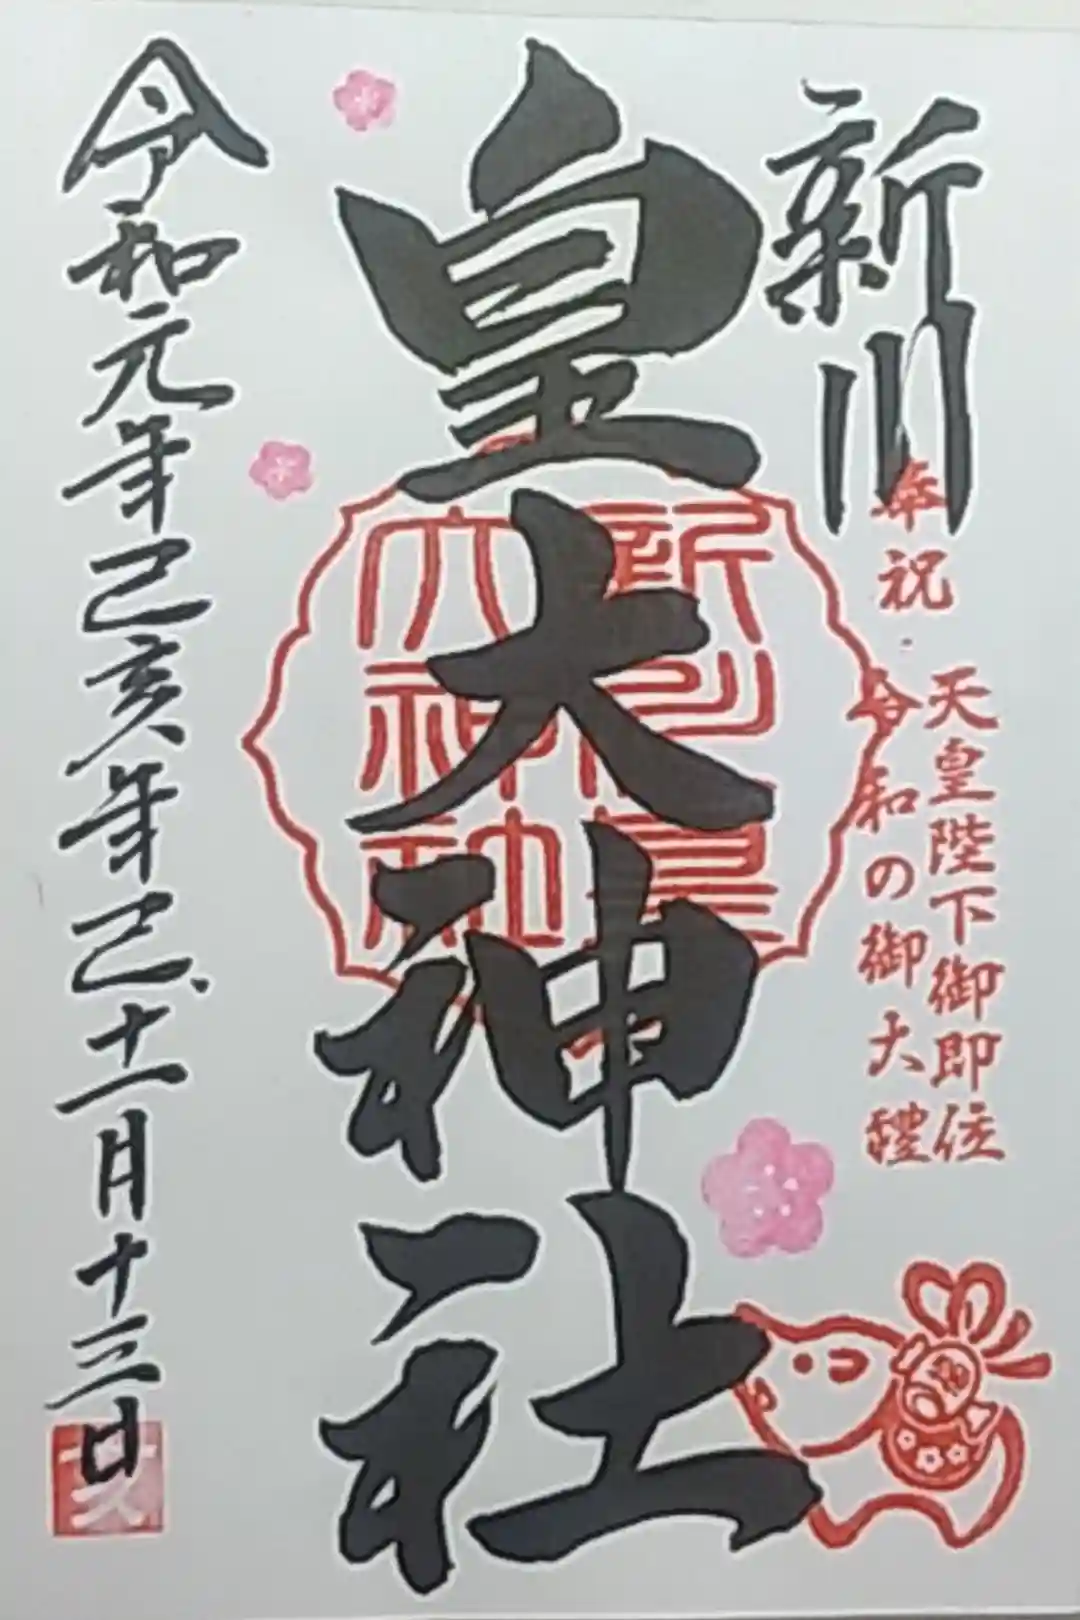 新川
奉祝・令和の御大禮
天皇陛下御即位
皇大神社
新川皇
大神社
令和元年己亥年己、十一月十三日
亥